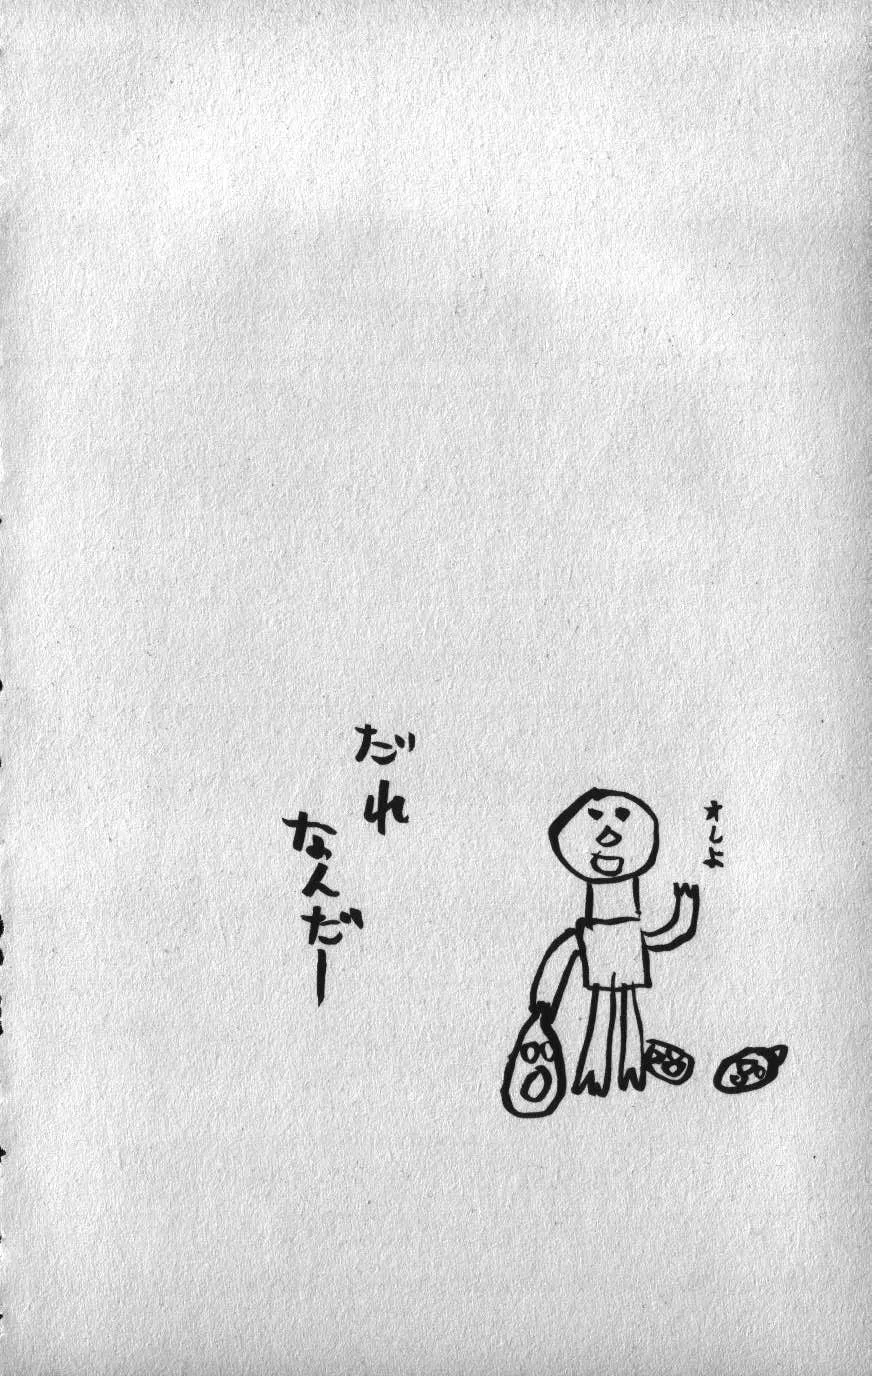 オレよ
だれ
なんだー